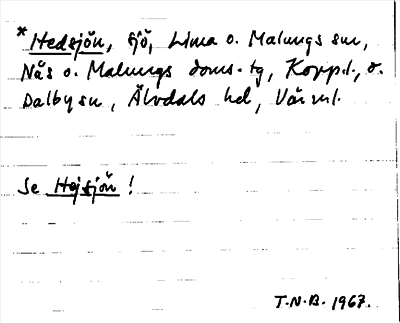 *Hedsjön, sjö, Lima o. Malungs snr,
Näs o. Malungs doms. tg, Kopp.l., o.
Dalby sn, Älvdals hd, Värml.
Se Hejsjön!
T.N.B. 1967.